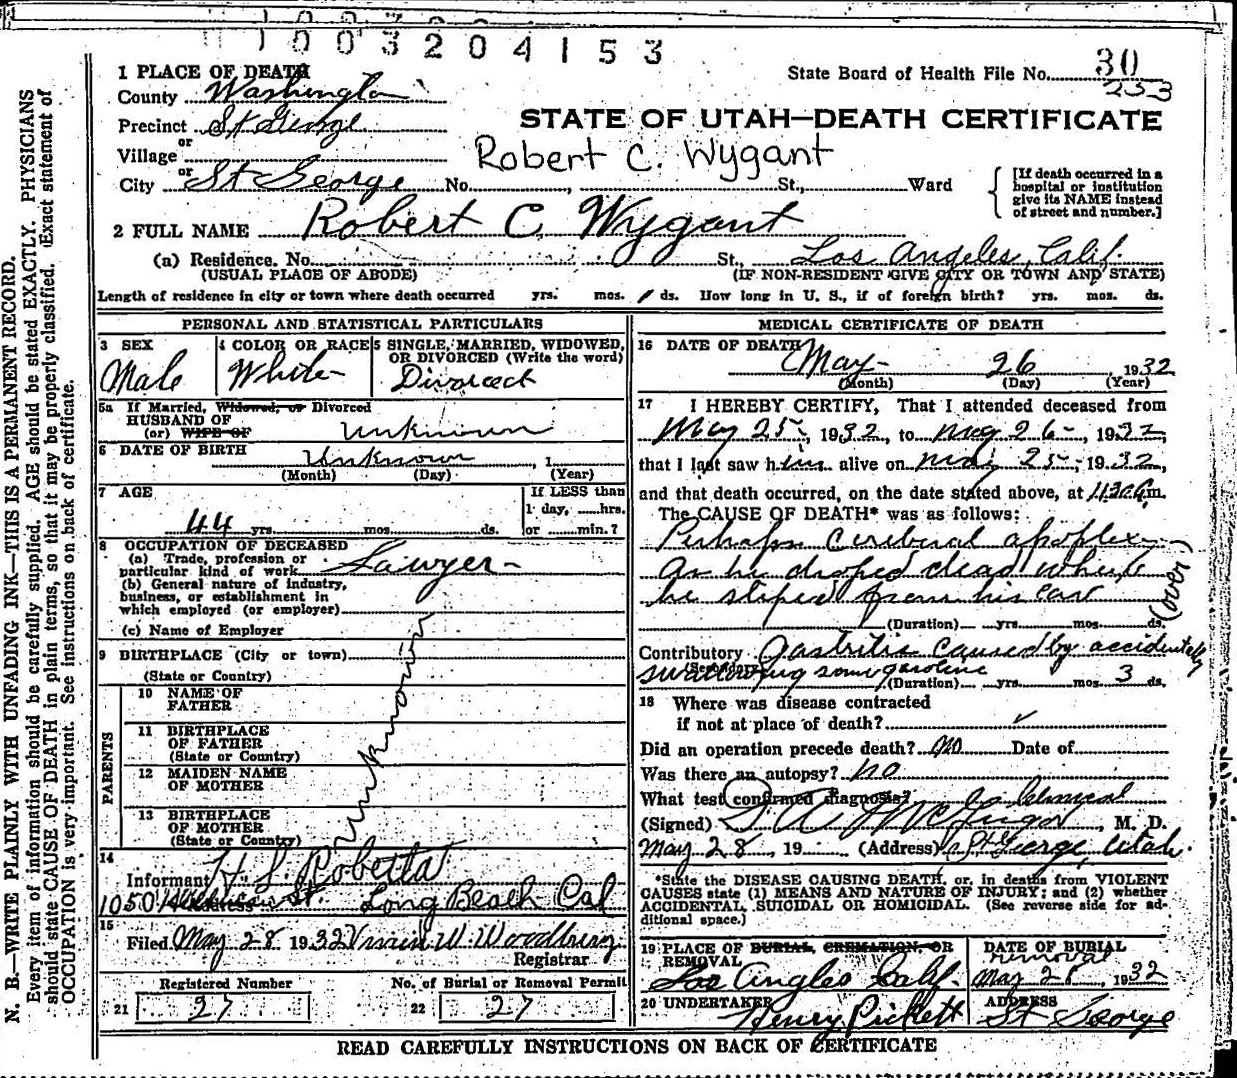 1003204153
State Board of Health File No. 30
233
1 PLACE OF DEATH
County Washington
STATE OF UTAH—DEATH CERTIFICATE
Precinct St George
or
Village
Robert C. Wygant
or
City St George No. , St., Ward
[If death occurred in a
hospital or institution
give its NAME instead
of street and number.]
2 FULL NAME Robert C. Wygant
(a) Residence. No. St., Los Angeles, Calif.
(USUAL PLACE OF ABODE) (IF NON-RESIDENT GIVE CITY OR TOWN AND STATE)
Length of residence in city or town where death occurred yrs. mos. 1 ds. How long in U. S., if of foreign birth? yrs. mos. ds.
PERSONAL AND STATISTICAL PARTICULARS
3 SEX
Male
4 COLOR OR RACE
White
5 SINGLE, MARRIED, WIDOWED,
OR DIVORCED (Write the word)
Divorced
5a If Married, Widowed, or Divorced
HUSBAND OF
(or) WIFE OF Unknown
6 DATE OF BIRTH Unknown , 1
(Month) (Day) (Year)
7 AGE
44 yrs. mos. ds.
If LESS than
1 day, hrs.
or min.?
8 OCCUPATION OF DECEASED
(a) Trade, profession or
particular kind of work Lawyer
(b) General nature of industry,
business, or establishment in
which employed (or employer)
(c) Name of Employer
9 BIRTHPLACE (City or town)
(State or Country)
unknown
PARENTS
10 NAME OF
FATHER
11 BIRTHPLACE
OF FATHER
(State or Country)
12 MAIDEN NAME
OF MOTHER
13 BIRTHPLACE
OF MOTHER
(State or Country)
14
Informant H. L. Robetta
Address 1050 St. Long Beach Cal
15
Filed May 28 1932 W. Woodbury
Registrar
Registered Number
21 27
No. of Burial or Removal Permit
22 27
MEDICAL CERTIFICATE OF DEATH
16 DATE OF DEATH
May 26 , 1932
(Month) (Day) (Year)
17 I HEREBY CERTIFY, That I attended deceased from
May 25 , 1932, to May 26 , 1932,
that I last saw him alive on May 25 , 1932,
and that death occurred, on the date stated above, at m.
The CAUSE OF DEATH* was as follows:
Perhaps Cerebral apoplexy
as he droped dead where
he stoped from his car
(over)
(Duration) yrs. mos. ds.
Contributory Gastritis caused by accidentally
(Secondary) swallowing some gasoline
(Duration) yrs. mos. 3 ds.
18 Where was disease contracted
if not at place of death?
Did an operation precede death? No Date of
Was there an autopsy? no
What test confirmed diagnosis? Clinical
(Signed) McGregor, M. D.
May 28, 19 (Address) St George, Utah.
*State the DISEASE CAUSING DEATH, or, in deaths from VIOLENT
CAUSES state (1) MEANS AND NATURE OF INJURY; and (2) whether
ACCIDENTAL, SUICIDAL OR HOMICIDAL. (See reverse side for ad-
ditional space.)
19 PLACE OF BURIAL, CREMATION, OR
REMOVAL
Los Angles Calif.
DATE OF BURIAL
removal
May 28, 1932
20 UNDERTAKER
Henry Pickett
ADDRESS
St George
READ CAREFULLY INSTRUCTIONS ON BACK OF CERTIFICATE
N. B.—WRITE PLAINLY WITH UNFADING INK—THIS IS A PERMANENT RECORD.
Every item of information should be carefully supplied. AGE should be stated EXACTLY. PHYSICIANS
should state CAUSE OF DEATH in plain terms, so that it may be properly classified. Exact statement of
OCCUPATION is very important. See instructions on back of certificate.